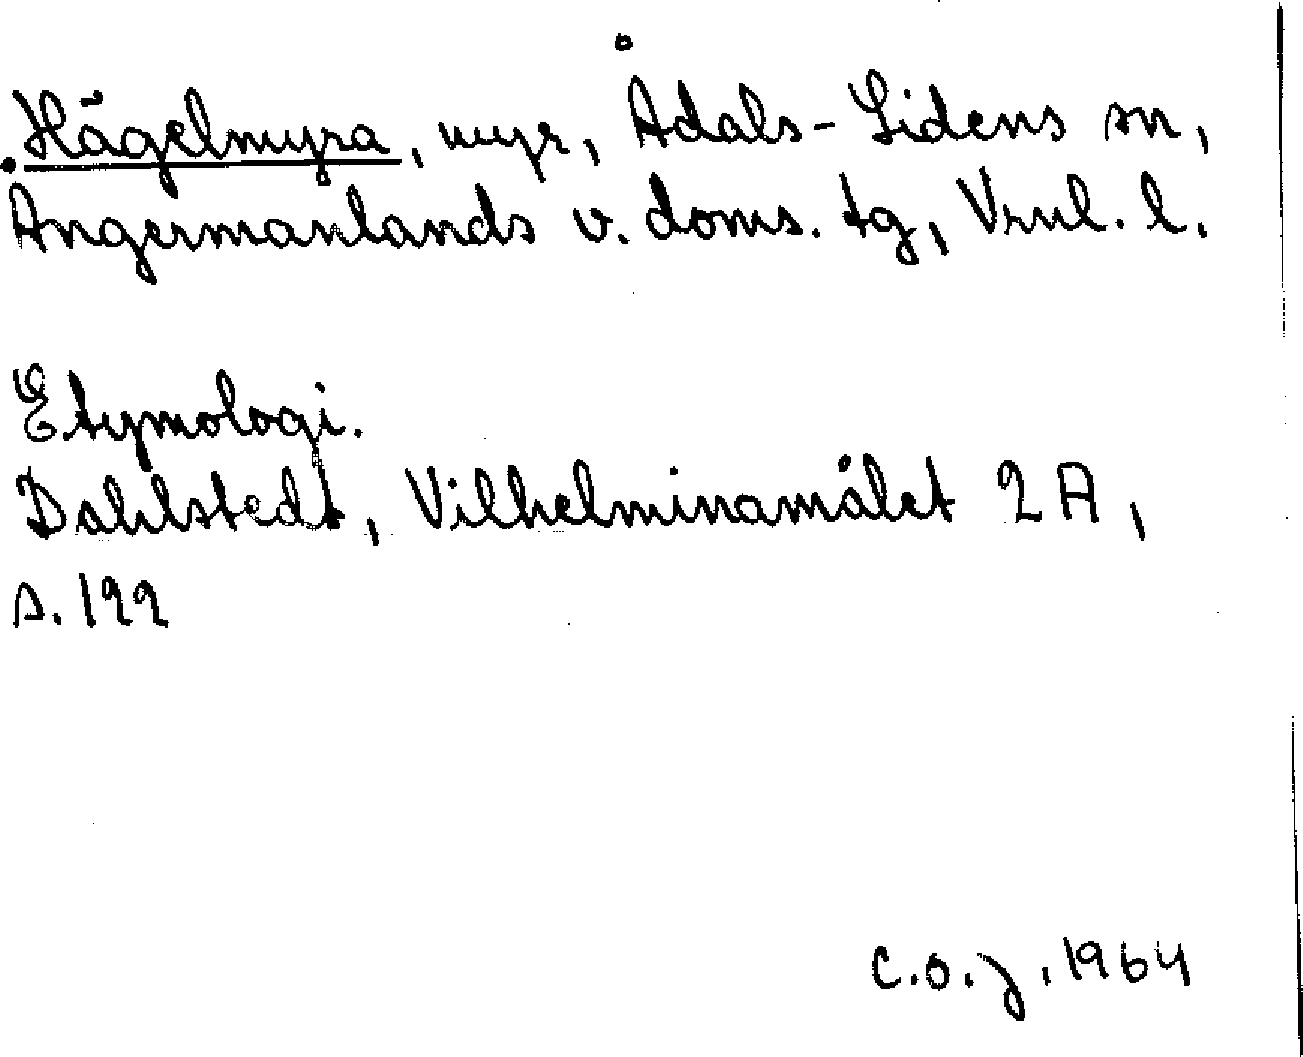 Hägelmyra, myr, Ådals-Lidens sn,
Ångermanlands v. doms. tg, Vrnl. l.
Etymologi.
Dahlstedt, Vilhelminamålet 2A,
s. 122
C.O.J. 1964